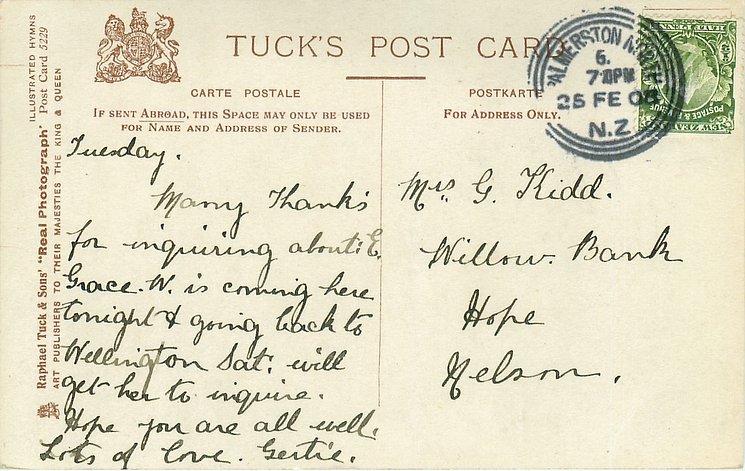 TUCK'S POST CARD
CARTE POSTALE
IF SENT ABROAD, THIS SPACE MAY ONLY BE USED
FOR NAME AND ADDRESS OF SENDER.
POSTKARTE
FOR ADDRESS ONLY.
PALMERSTON NORTH
6.
7-PM
25 FE 08
N.Z
POSTAGE &
Raphael Tuck & Sons' "Real Photograph" Post Card 5229
ILLUSTRATED HYMNS
ART PUBLISHERS TO THEIR MAJESTIES THE KING & QUEEN
Tuesday.
Many Thanks
for inquiring about E.
Grace. W. is coming here
tonight & going back to
Wellington Sat: will
get her to inquire.
Hope you are all well.
Lots of love. Gertie.
Mrs G. Kidd.
Willow. Bank
Hope
Nelson.